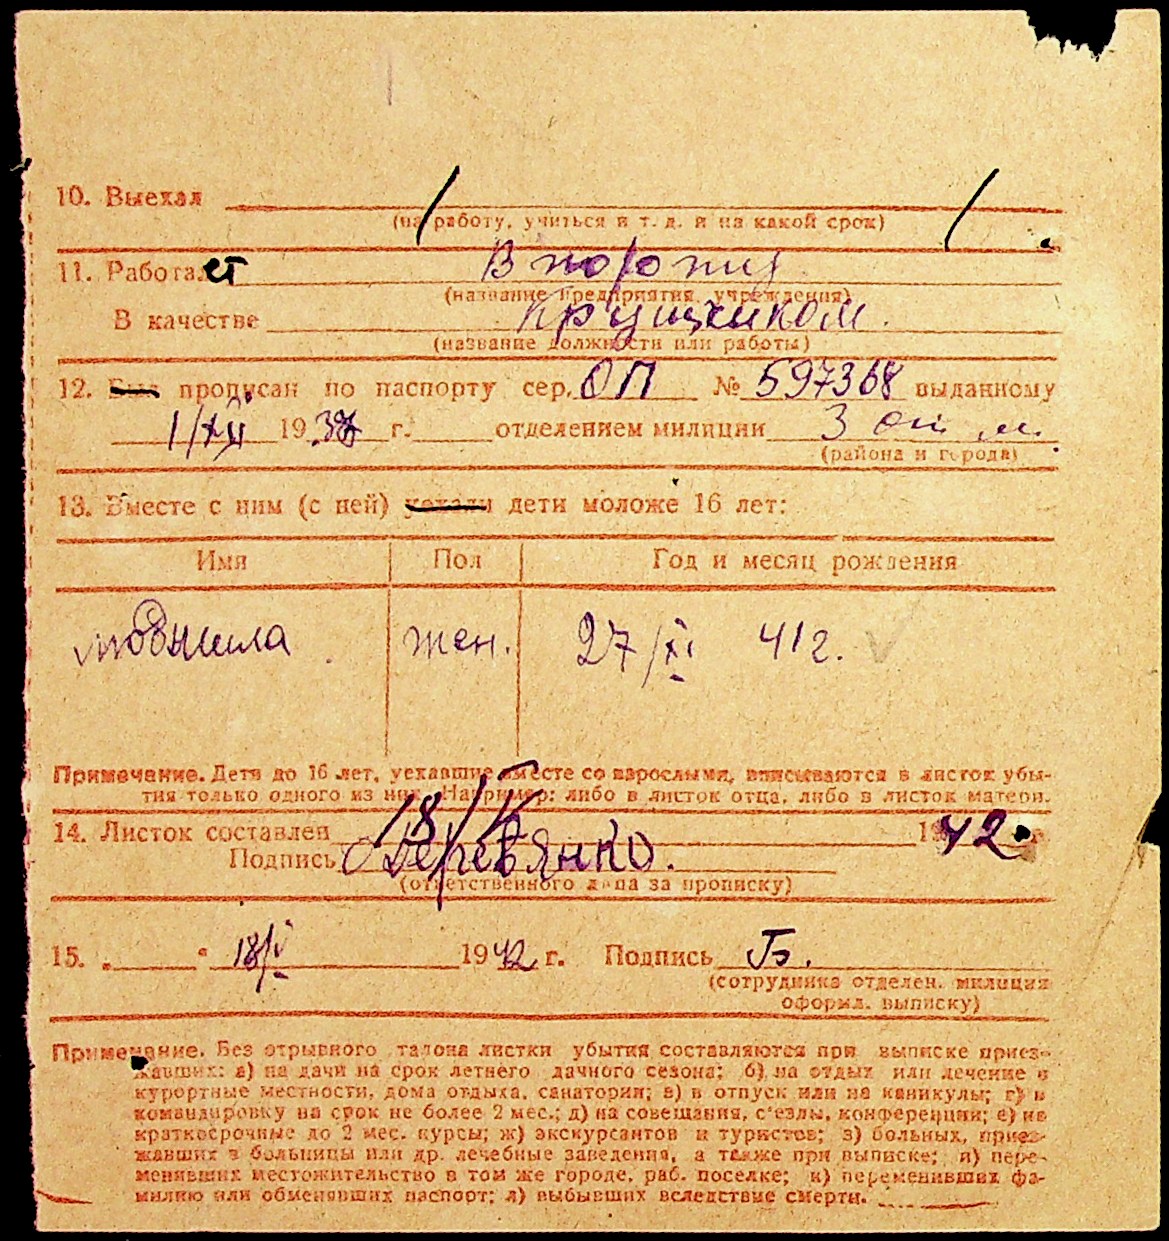 10. Выехал
(на работу, учиться и т. д. и на какой срок)
11. Работает В порту
(название предприятия, учреждения)
В качестве грузчиком.
(название должности или работы)
12. Был прописан по паспорту сер. ОП № 597368 выданному
1/XII 1937 г. отделением милиции 3 от. м.
(района и города)
13. Вместе с ним (с ней) уехали дети моложе 16 лет:
Имя Пол Год и месяц рождения
Людмила жен. 27/XI 41г.
Примечание. Дети до 16 лет, уехавшие вместе со взрослыми, вписываются в листок убы-
тия только одного из них. Например: либо в листок отца, либо в листок матери.
14. Листок составлен 18/V 1942 г.
Подпись Деревянко.
(ответственного лица за прописку)
15. „ “ 18/V 1942 г. Подпись Б.
(сотрудника отделен. милиции
оформл. выписку)
Примечание. Без отрывного талона листки убытия составляются при выписке приез-
жавших: а) на дачи на срок летнего дачного сезона; б) на отдых или лечение в
курортные местности, дома отдыха, санатории; в) в отпуск или на каникулы; г) в
командировку на срок не более 2 мес.; д) на совещания, с'езды, конференции; е) на
краткосрочные до 2 мес. курсы; ж) экскурсантов и туристов; з) больных, приез-
жавших в больницы или др. лечебные заведения, а также при выписке; и) пере-
менивших местожительство в том же городе, раб. поселке; к) переменивших фа-
милию или обменявших паспорт; л) выбывших вследствие смерти.